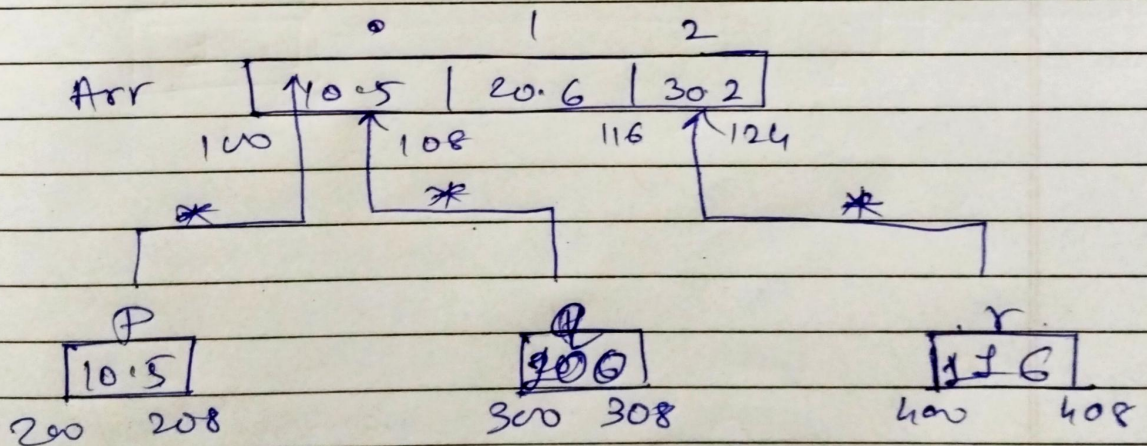 0 1 2
Arr 10.5 | 20.6 | 30.2
100 108 116 124
* * *
P r
10.5 116
200 208 300 308 400 408